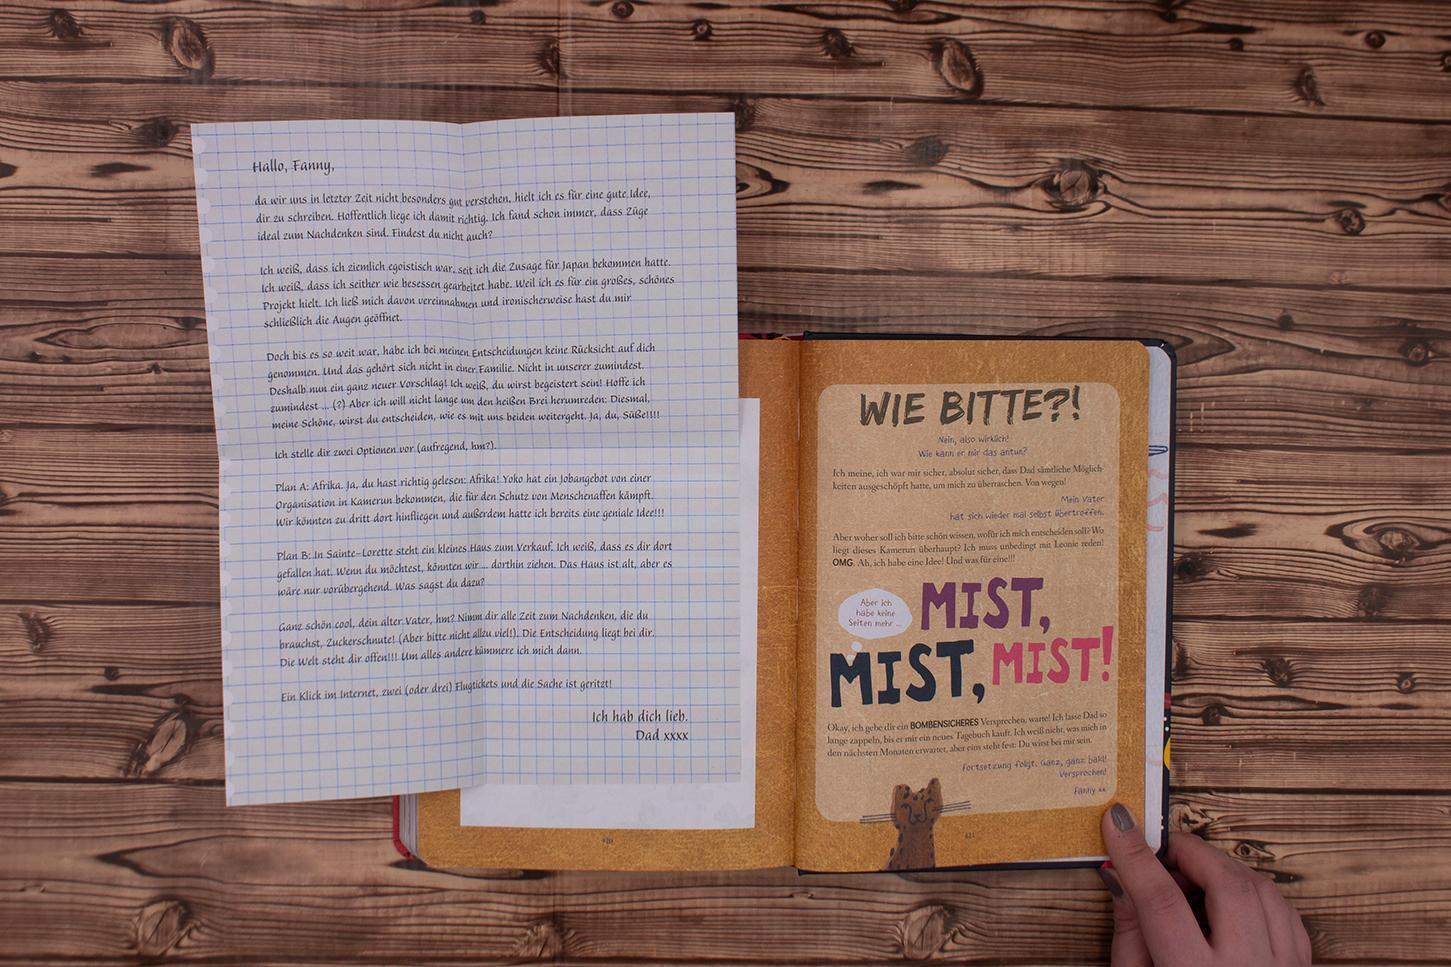 Hallo, Fanny,
da wir uns in letzter Zeit nicht besonders gut verstehen, hielt ich es für eine gute Idee,
dir zu schreiben. Hoffentlich liege ich damit richtig. Ich fand schon immer, dass Züge
ideal zum Nachdenken sind. Findest du nicht auch?
Ich weiß, dass ich ziemlich egoistisch war, seit ich die Zusage für Japan bekommen hatte.
Ich weiß, dass ich seither wie besessen gearbeitet habe. Weil ich es für ein großes, schönes
Projekt hielt. Ich ließ mich davon vereinnahmen und ironischerweise hast du mir
schließlich die Augen geöffnet.
Doch bis es so weit war, habe ich bei meinen Entscheidungen keine Rücksicht auf dich
genommen. Und das gehört sich nicht in einer Familie. Nicht in unserer zumindest.
Deshalb nun ein ganz neuer Vorschlag! Ich weiß, du wirst begeistert sein! Hoffe ich
zumindest ... (?) Aber ich will nicht lange um den heißen Brei herumreden: Diesmal,
meine Schöne, wirst du entscheiden, wie es mit uns beiden weitergeht. Ja, du, Süße!!!!
Ich stelle dir zwei Optionen vor (aufregend, hm?).
Plan A: Afrika. Ja, du hast richtig gelesen: Afrika! Yoko hat ein Jobangebot von einer
Organisation in Kamerun bekommen, die für den Schutz von Menschenaffen kämpft.
Wir könnten zu dritt dort hinfliegen und außerdem hatte ich bereits eine geniale Idee!!!
Plan B: In Sainte-Lorette steht ein kleines Haus zum Verkauf. Ich weiß, dass es dir dort
gefallen hat. Wenn du möchtest, könnten wir ... dorthin ziehen. Das Haus ist alt, aber es
wäre nur vorübergehend. Was sagst du dazu?
Ganz schön cool, dein alter Vater, hm? Nimm dir alle Zeit zum Nachdenken, die du
brauchst, Zuckerschnute! (Aber bitte nicht allzu viel!). Die Entscheidung liegt bei dir.
Die Welt steht dir offen!!! Um alles andere kümmere ich mich dann.
Ein Klick im Internet, zwei (oder drei) Flugtickets und die Sache ist geritzt!
Ich hab dich lieb.
Dad xxxx
420
WIE BITTE?!
Nein, also wirklich!
Wie kann er mir das antun?
Ich meine, ich war mir sicher, absolut sicher, dass Dad sämtliche Möglich-
keiten ausgeschöpft hatte, um mich zu überraschen. Von wegen!
Mein Vater
hat sich wieder mal selbst übertroffen.
Aber woher soll ich bitte schön wissen, wofür ich mich entscheiden soll? Wo
liegt dieses Kamerun überhaupt? Ich muss unbedingt mit Leonie reden!
OMG. Ah, ich habe eine Idee! Und was für eine!!!
Aber ich
habe keine
Seiten mehr ...
MIST,
MIST, MIST!
Okay, ich gebe dir ein BOMBENSICHERES Versprechen, warte! Ich lasse Dad so
lange zappeln, bis er mir ein neues Tagebuch kauft. Ich weiß nicht, was mich in
den nächsten Monaten erwartet, aber eins steht fest: Du wirst bei mir sein.
Fortsetzung folgt. Ganz, ganz bald!
Versprochen!
Fanny xx
421